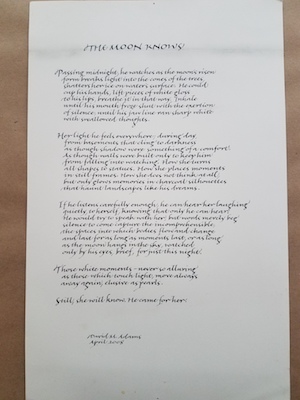 THE MOON KNOWS
Passing midnight, he watches as the moon's risen
form breaks light into the ones of the trees,
shatters her ice on water's surface. He could
cup his hands, lift pieces of white gloss
to his lips, breathe it in that way. Inhale
until his mouth froze shut with the exertion
of silence, until his jaw line ran sharp white
with swallowed thoughts.
Her light he feels everywhere; during day
from basements that cling to darkness
as though shadow were something of a comfort.
As though walls were built only to keep him
from falling into nothing. How she turns
all shapes to statues. How she places moments
in still frames. How she does not think at all
of such given memories in charcoal silhouettes
that haunt landscapes like his dreams.
If he listens carefully enough, he can hear her laughing
quietly, to herself, knowing that only he can hear.
He would try to speak with her; but words merely beg
silence to come capture the incomprehensible,
the spaces into which bodies flow and change
and last for as long as moments last, or as long
as the moon hangs in the sky, watched
only by his eyes, brief, for just this night.
Those white moments—never so alluring
as those which touch light, more always
away again, elusive as pearls.
Still, she will know. He came for her.
David H. Adams
April 2008